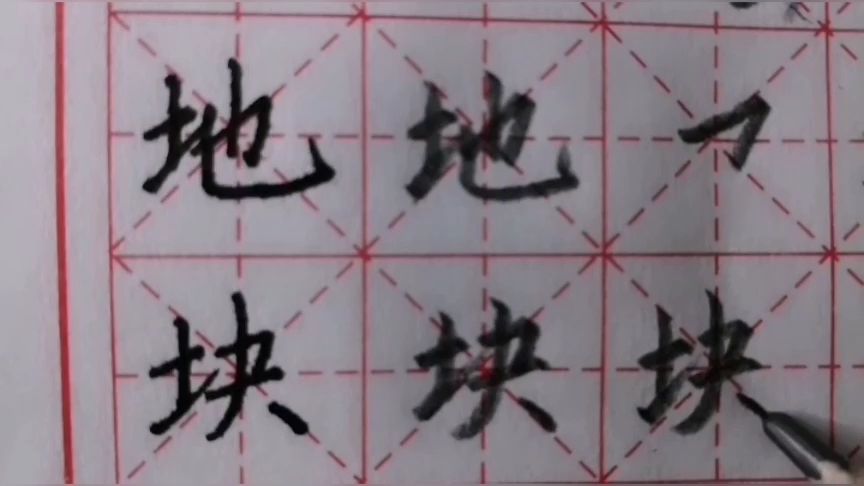 地地㇇
块块块